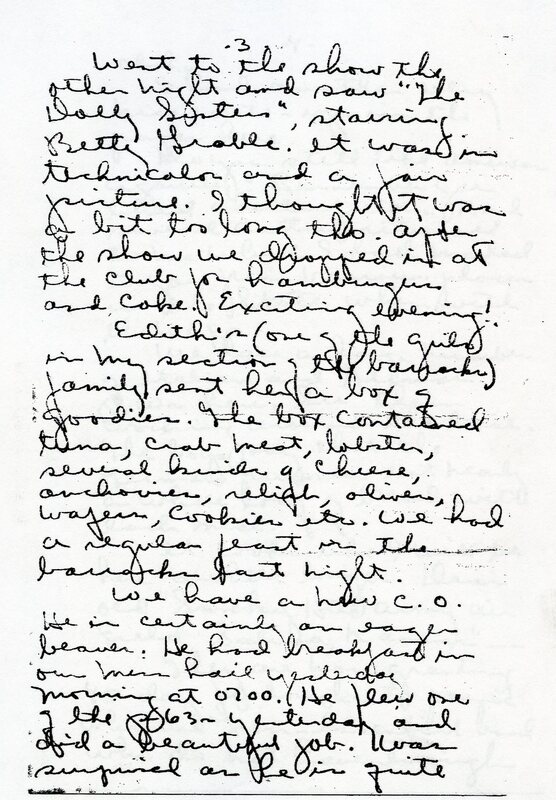 .3
Went to the show the
other night and saw "The
Dolly Sisters", starring
Betty Grable. It was in
technicolor and a fair
picture. I thought it was
a bit too long tho. After
the show we dropped in at
the club for hamburgers
and coke. Exciting evening!
Edith's (one of the girls
in my section of the barracks)
family sent her a box of
goodies. The box contained
tuna, crab meat, lobster,
several kinds of cheese,
anchovies, relish, olives,
wafers, cookies etc. We had
a regular feast in the
barracks last night.
We have a new C.O.
He is certainly an eager
beaver. He had breakfast in
our mess hall yesterday
morning at 0700. (He flew one
of the 63s yesterday and
did a beautiful job. Was
surprised as he is quite